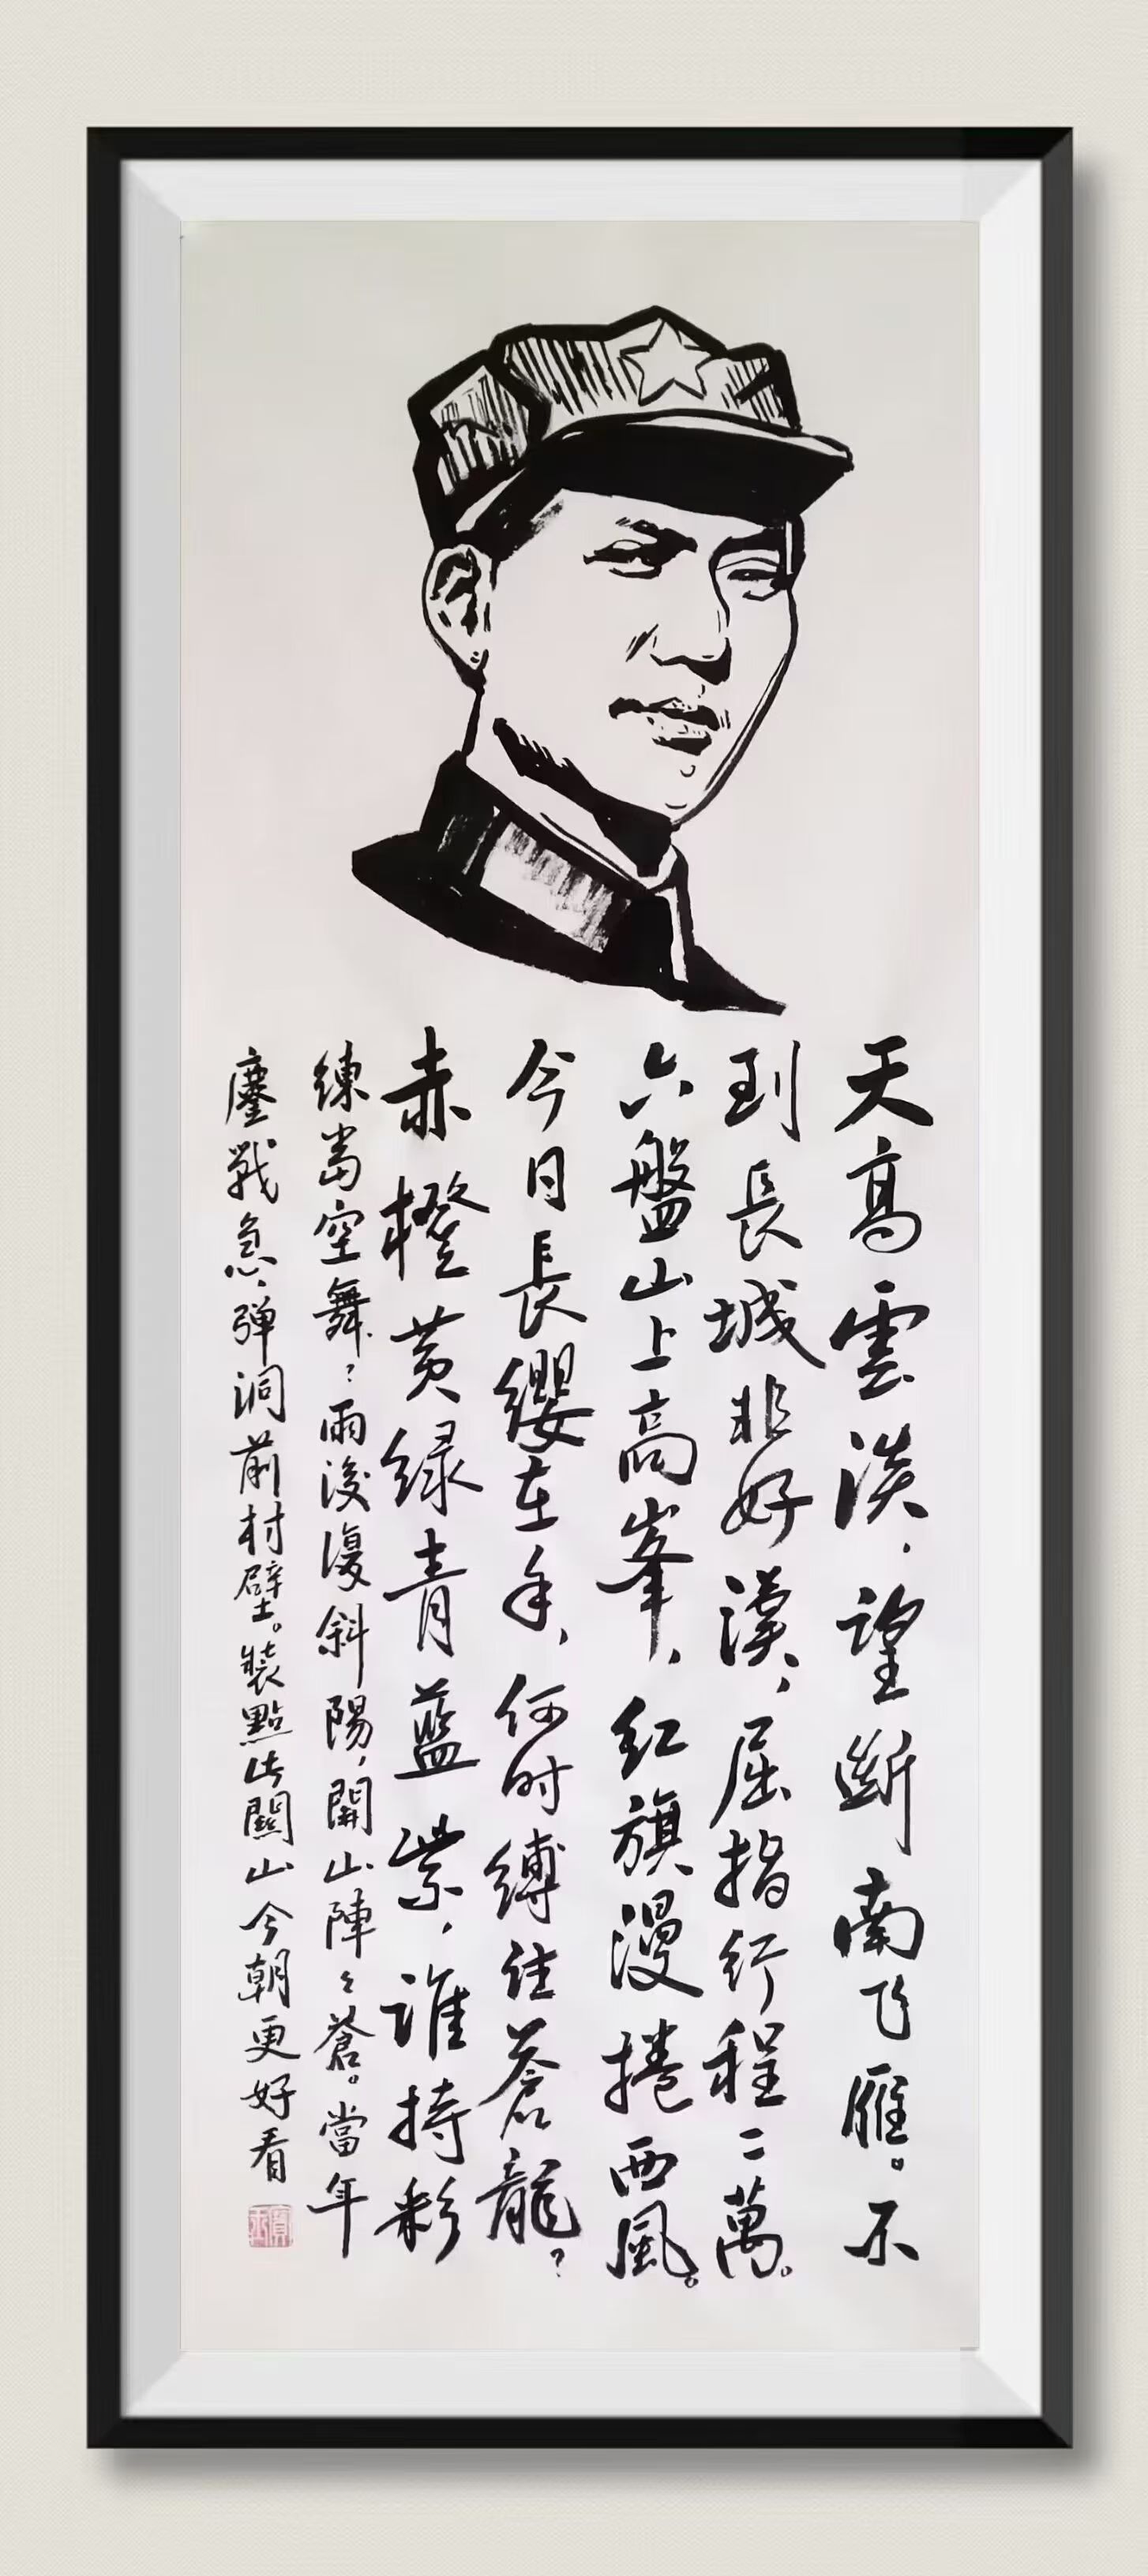 天高雲淡，望斷南飞雁。不
到長城非好漢，屈指行程二萬。
六盤山上高峯，红旗漫捲西風。
今日長纓在手，何时縛住蒼龍？
赤橙黄绿青藍紫，谁持彩
练當空舞？雨後復斜陽，開山陣々蒼。當年
鏖戰急，弹洞前村壁。裝點此關山今朝更好看